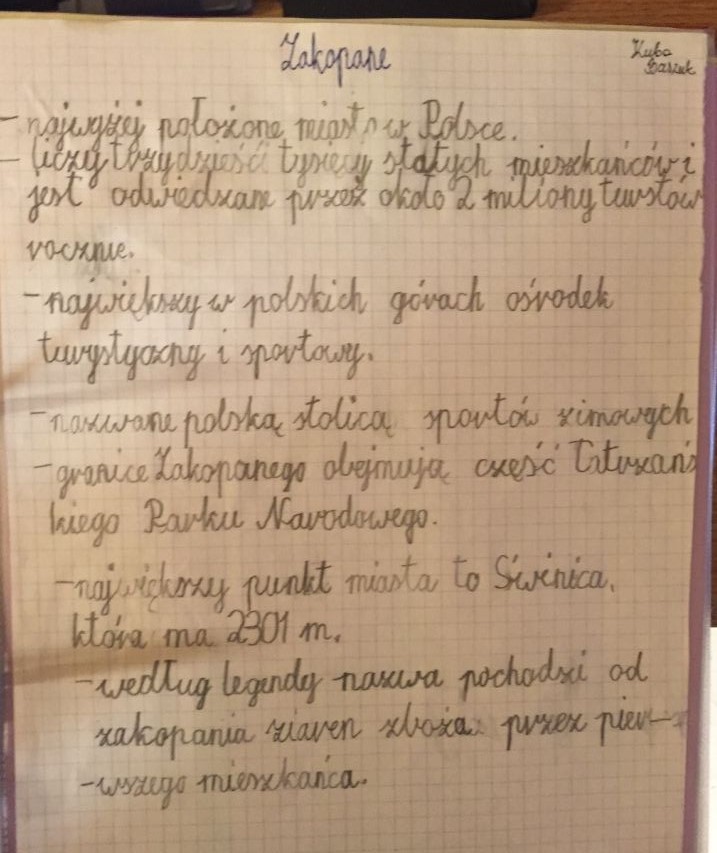 Zakopane
Kuba
- najwyżej położone miasto w Polsce.
- liczy trzydzieści tysięcy stałych mieszkańców i
jest odwiedzane przez około 2 miliony turstów
rocznie.
- największy w polskich górach ośrodek
turystyczny i sportowy.
- nazwane polską stolicą sportów zimowych
- granice Zakopanego obejmują część Tatrzańs
kiego Parku Narodowego.
- największy punkt miasta to Świnica,
która ma 2301 m.
- według legendy nazwa pochodzi od
zakopania ziaren zboża przez pier-
- wszego mieszkańca.